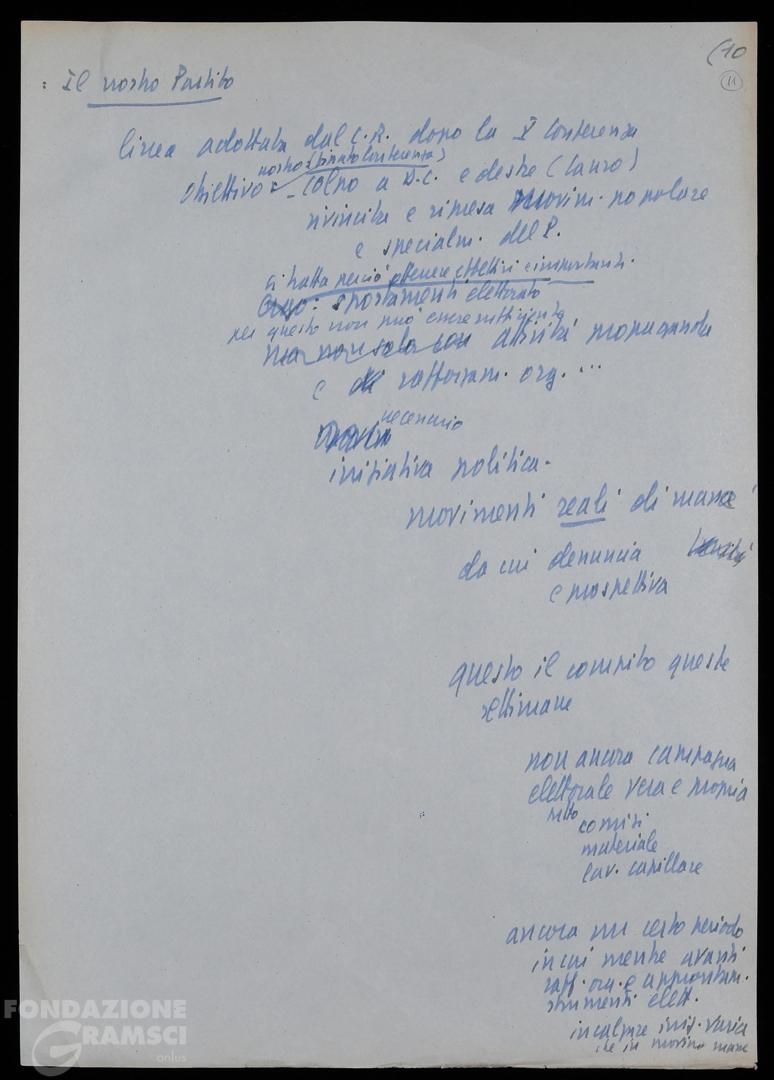 (10
11
: Il nostro Partito
linea adottata dal C.R. dopo la V Conferenza
nostro (binato Conferenza)
Obiettivo: - Colpo a D.C. e destre (Lauro)
rivincita e ripresa movim. popolare
e specialm. del P.
si tratta perciò ottenere effettivi e importanti
spostamenti elettorato
per questo non può essere sufficiente
ma non solo con attività propaganda
e di rafforzam. org. ...
necessario
iniziativa politica -
movimenti reali di masse
da cui denuncia
e prospettiva
questo il compito queste
settimane
non ancora campagna
elettorale vera e propria
sotto
comizi
materiale
lav. capillare
ancora un certo periodo
in cui mentre avanti
raff. org. e approntam.
strumenti elett.
incalzare iniz. varia
che in movim. masse
FONDAZIONE
GRAMSCI
onlus